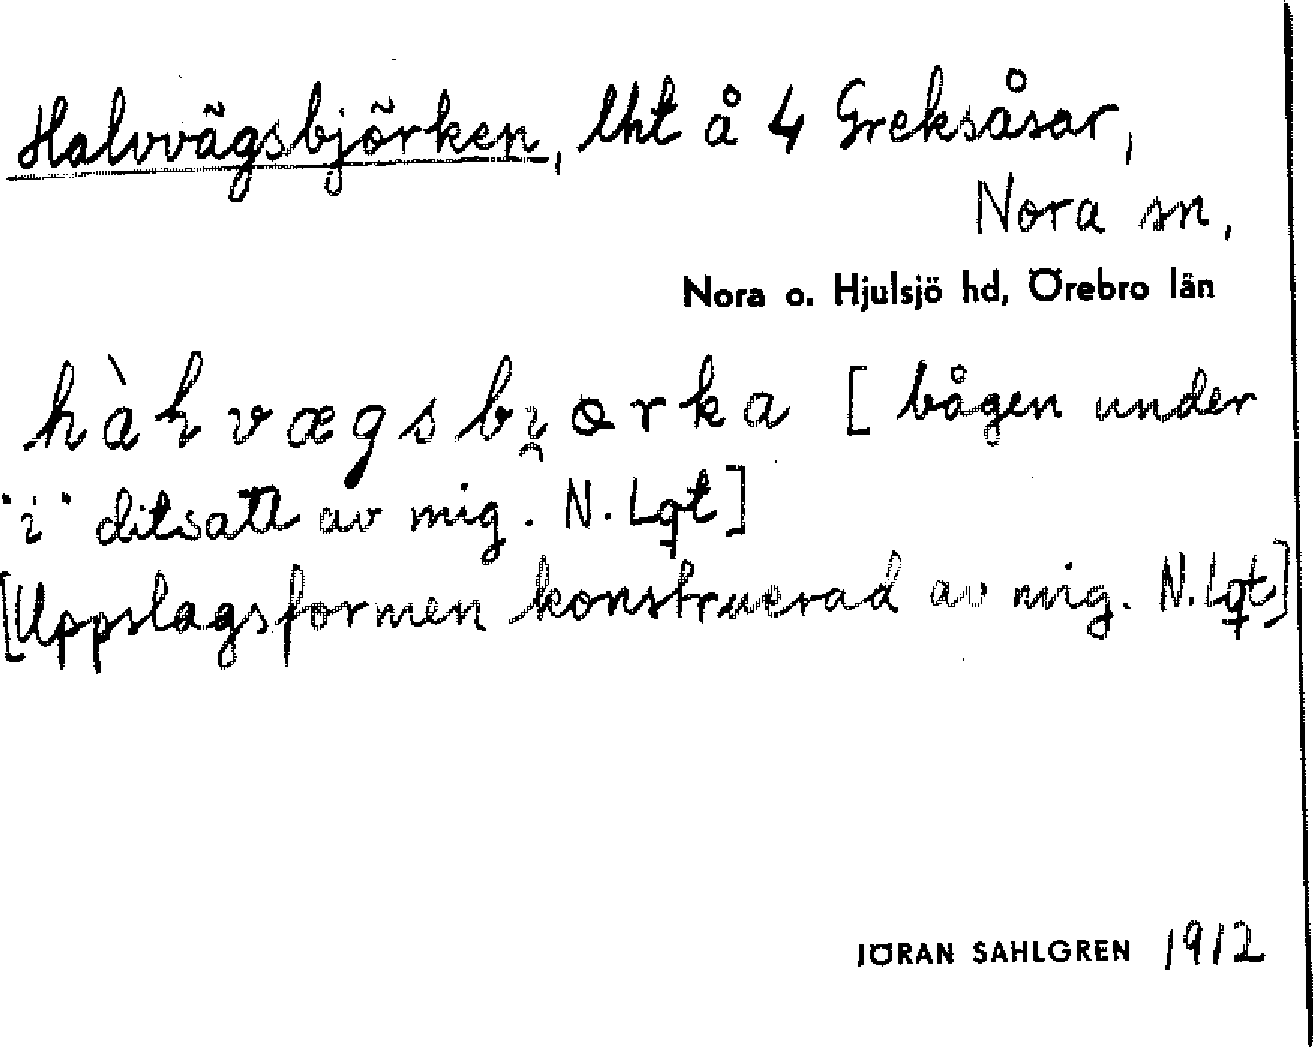 Halvvägsbjörken, lht å 4 Greksåsar,
Nora sn,
Nora o. Hjulsjö hd, Örebro län
hàɫvægsbi̯ɵrka [ bågen under
"i" ditsatt av mig. N. Lgt]
[Uppslagsformen konstruerad av mig. N. Lgt]
JÖRAN SAHLGREN 1912